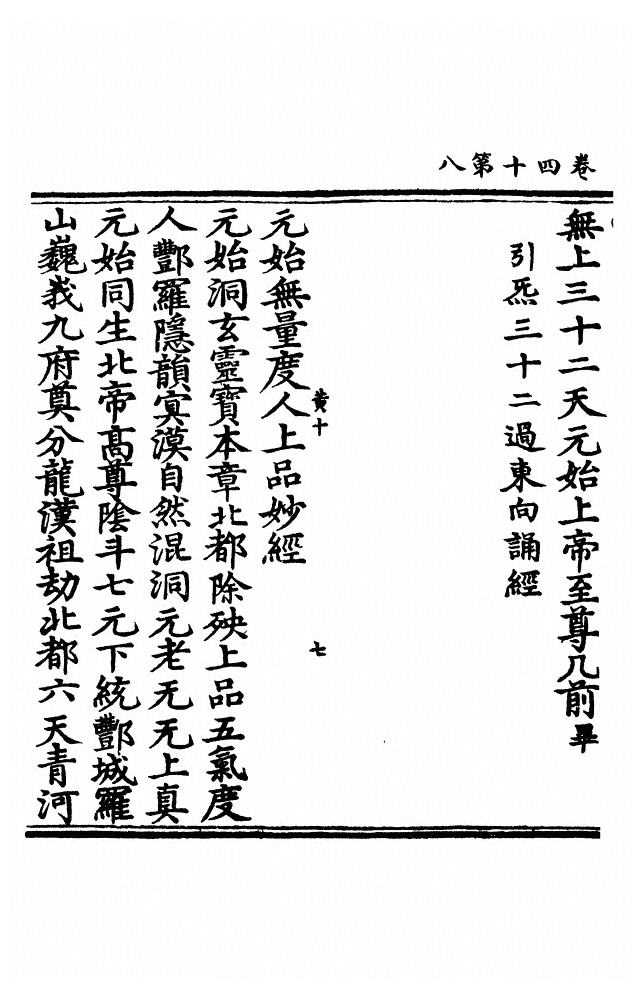 卷四十第八
無上三十二天元始上帝至尊几前畢
引炁三十二過東向誦經
黄十
七
元始無量度人上品妙經
元始洞玄靈寶本章北都除殃上品五氣度
人酆羅隱韻㝠漠自然混洞元老无无上真
元始同生北帝高尊陰斗七元下統酆城羅
山巍峩九府奠分龍漢祖劫北都六天青河